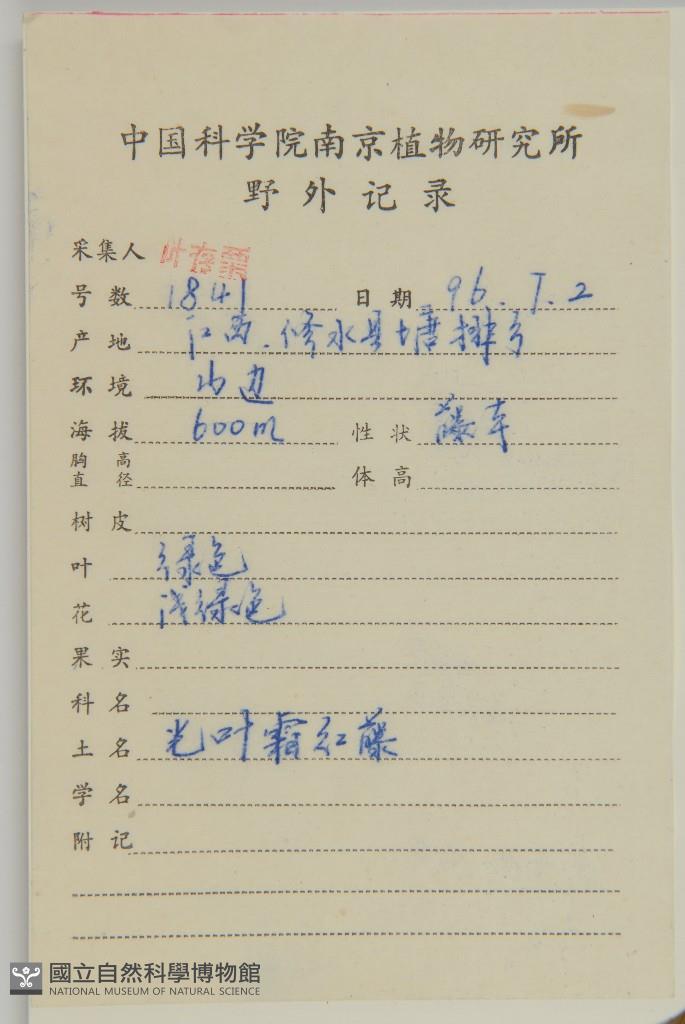 中国科学院南京植物研究所
野外记录
采集人 叶存粟
号数 1841 日期 96.7.2
产地 江西.修水县塘排
环境 山边
海拔 600m 性状 藤本
胸高直径 体高
树皮
叶 绿色
花 浅绿色
果实
科名
土名 光叶霜红藤
学名
附记
國立自然科學博物館
NATIONAL MUSEUM OF NATURAL SCIENCE